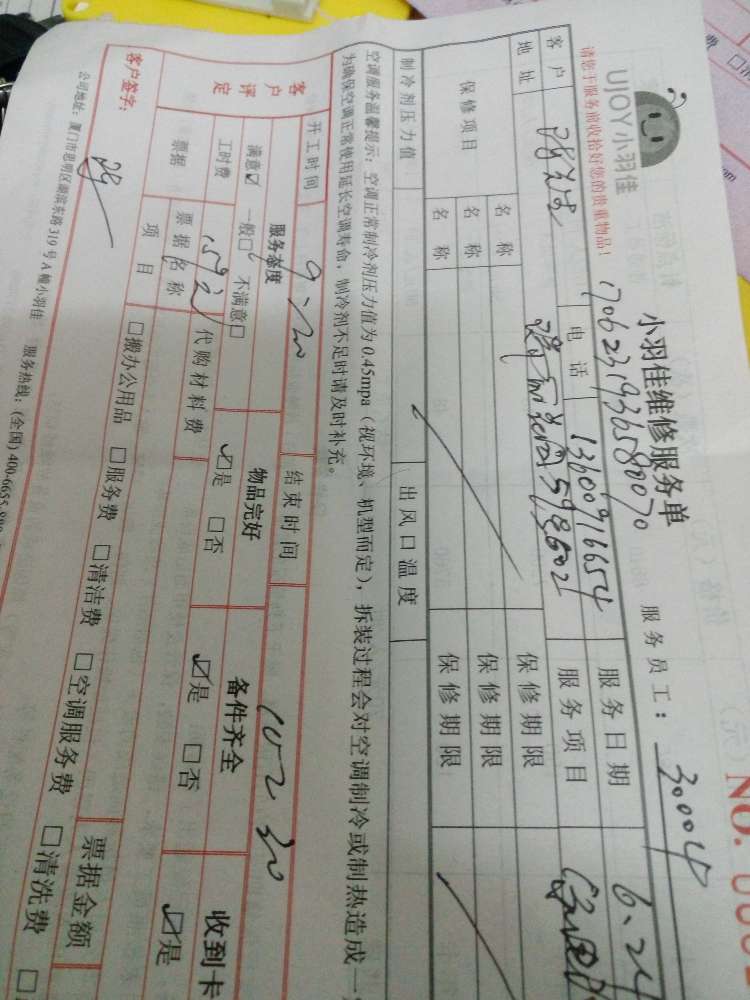 UJOY小羽佳
请您于服务前收拾好您的贵重物品!
小羽佳维修服务单
1706231936580070
服务员工: 30004
NO.
客户 电话 13600916654 服务日期 6.24
地址 服务项目
保修项目 名称 保修期限
名称 保修期限
名称 保修期限
制冷剂压力值 出风口温度
空调服务温馨提示: 空调正常制冷剂压力值为0.45mpa (视环境、机型而定), 拆装过程会对空调制冷或制热造成一
为确保空调正常使用延长空调寿命, 制冷剂不足时请及时补充。
开工时间 9:20 结束时间 10:30
客户评定 服务态度 物品完好 备件齐全 收到卡
满意☑ 一般□ 不满意□ ☑是 □否 ☑是 □否 ☑是
工时费 159元 代购材料费
票据 票据名称 票据金额
项目 □搬办公用品 □服务费 □清洁费 □空调服务费 □清洗费
客户签字:
公司地址: 厦门市思明区湖滨东路319号A幢小羽佳 服务热线: (全国) 400-6655-